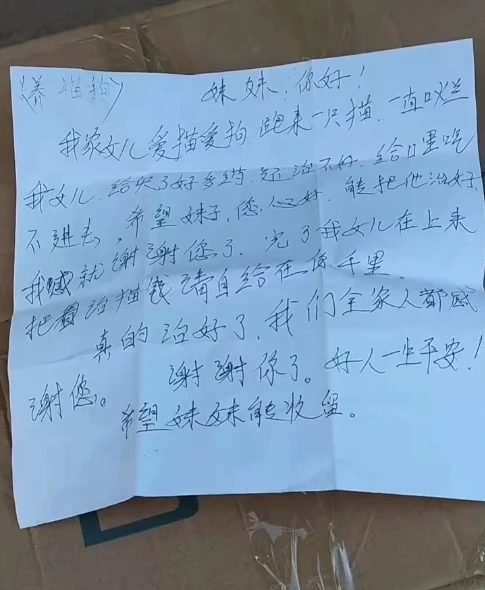 (养猫狗)
妹妹:你好!
我家女儿爱猫爱狗.跑来一只猫.一直叫
我女儿.给买了好多药.还治不好.给口里吃
不进去,希望妹子,您,心好.能把他治好.
我就谢谢您了.完了我女儿在上来
把治猫钱请自给在你手里.
真的治好了.我们全家人都感
谢您。谢谢你了。好人一生平安!
希望妹妹能收留。